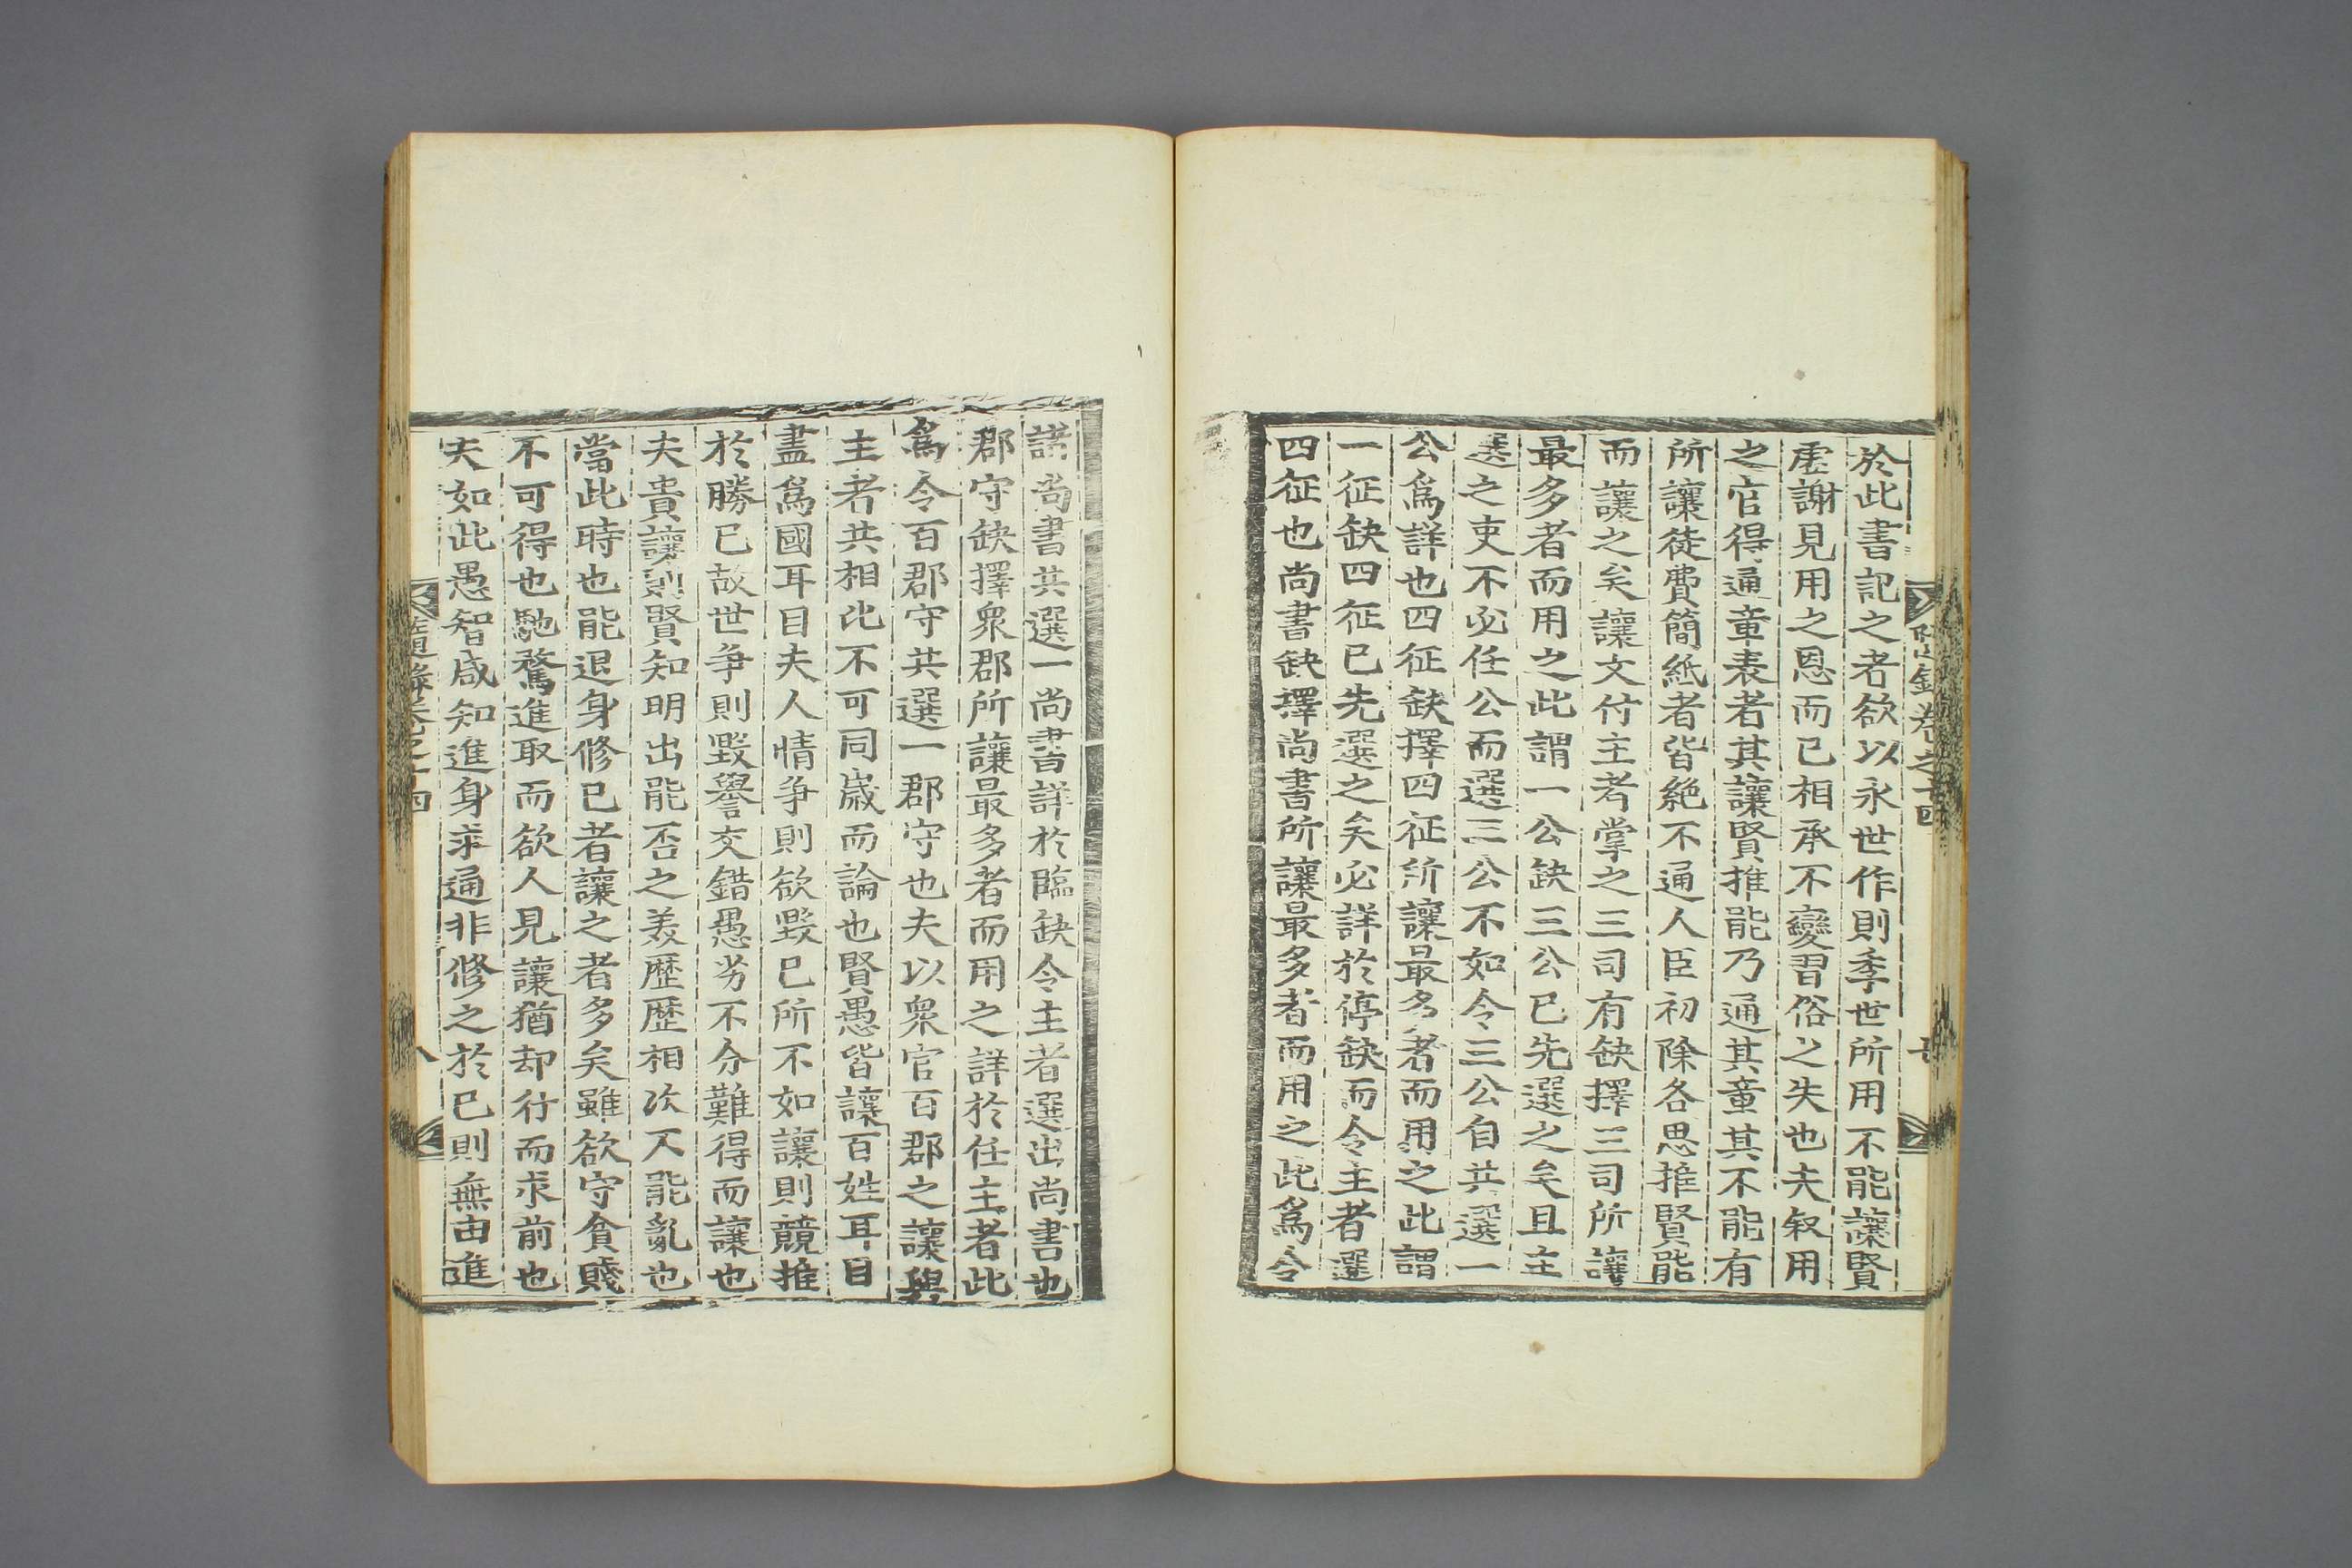 於此書記之者欲以永世作則季世所用不能讓賢
虛謝見用之恩而已相承不變習俗之失也夫叙用
之官得通章表者其讓賢推能乃通其章其不能有
所讓徒費簡紙者皆絶不通人臣初除各思推賢能
而讓之矣讓文付主者掌之三司有缺擇三司所讓
最多者而用之此謂一公缺三公已先選之矣且主
選之吏不必任公而選三公不如令三公自共選一
公爲詳也四征缺擇四征所讓最多者而用之此謂
一征缺四征已先選之矣必詳於停缺而令主者選
四征也尚書缺擇尚書所讓最多者而用之此爲令
諸尚書共選一尚書詳於臨缺令主者選出尚書也
郡守缺擇衆郡所讓最多者而用之詳於任主者此
爲令百郡守共選一郡守也夫以衆官百郡之讓與
主者共相比不可同歲而論也賢愚皆讓百姓耳目
盡爲國耳目夫人情争則欲毀已所不如讓則競推
於勝已故世争則毀譽交錯愚劣不分難得而讓也
夫貴讓則賢知明出能否之美歷歷相次不能亂也
當此時也能退身修已者讓之者多矣雖欲守貪賤
不可得也馳騖進取而欲人見讓猶却行而求前也
夫如此愚智咸知進身求通非修之於已則無由進
卷之十四
八